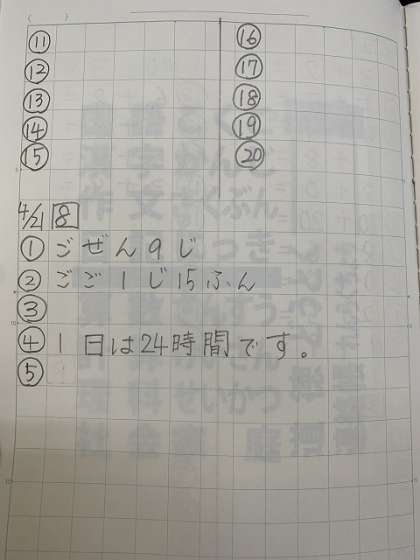 ⑪ ⑯
⑫ ⑰
⑬ ⑱
⑭ ⑲
⑮ ⑳
4/21 8
① ごぜん9じ
② ごご1じ15ふん
③
④ 1日は24時間です。
⑤